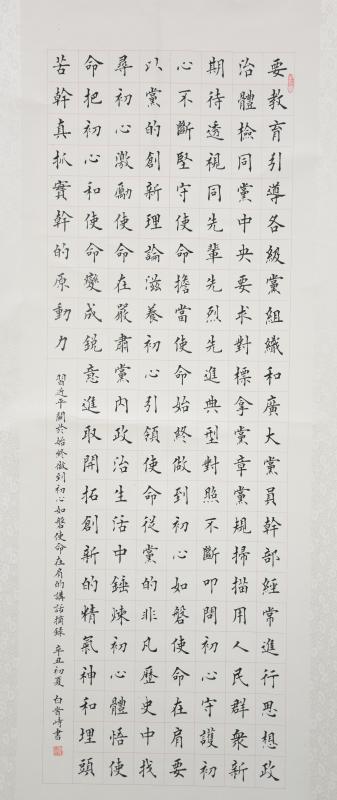 要教育引導各級黨組織和廣大黨員幹部經常進行思想政
治體檢同黨中央要求對標拿黨章黨規掃描用人民群衆新
期待透視同先輩先烈先進典型對照不斷叩問初心守護初
心不斷堅守使命擔當使命始終做到初心如磐使命在肩要
以黨的創新理論滋養初心引領使命從黨的非凡歷史中找
尋初心激勵使命在嚴肅黨內政治生活中錘煉初心體悟使
命把初心和使命變成銳意進取開拓創新的精氣神和埋頭
苦幹真抓實幹的原動力
習近平關於始終做到初心如磐使命在肩的講話摘錄 辛丑初夏 書